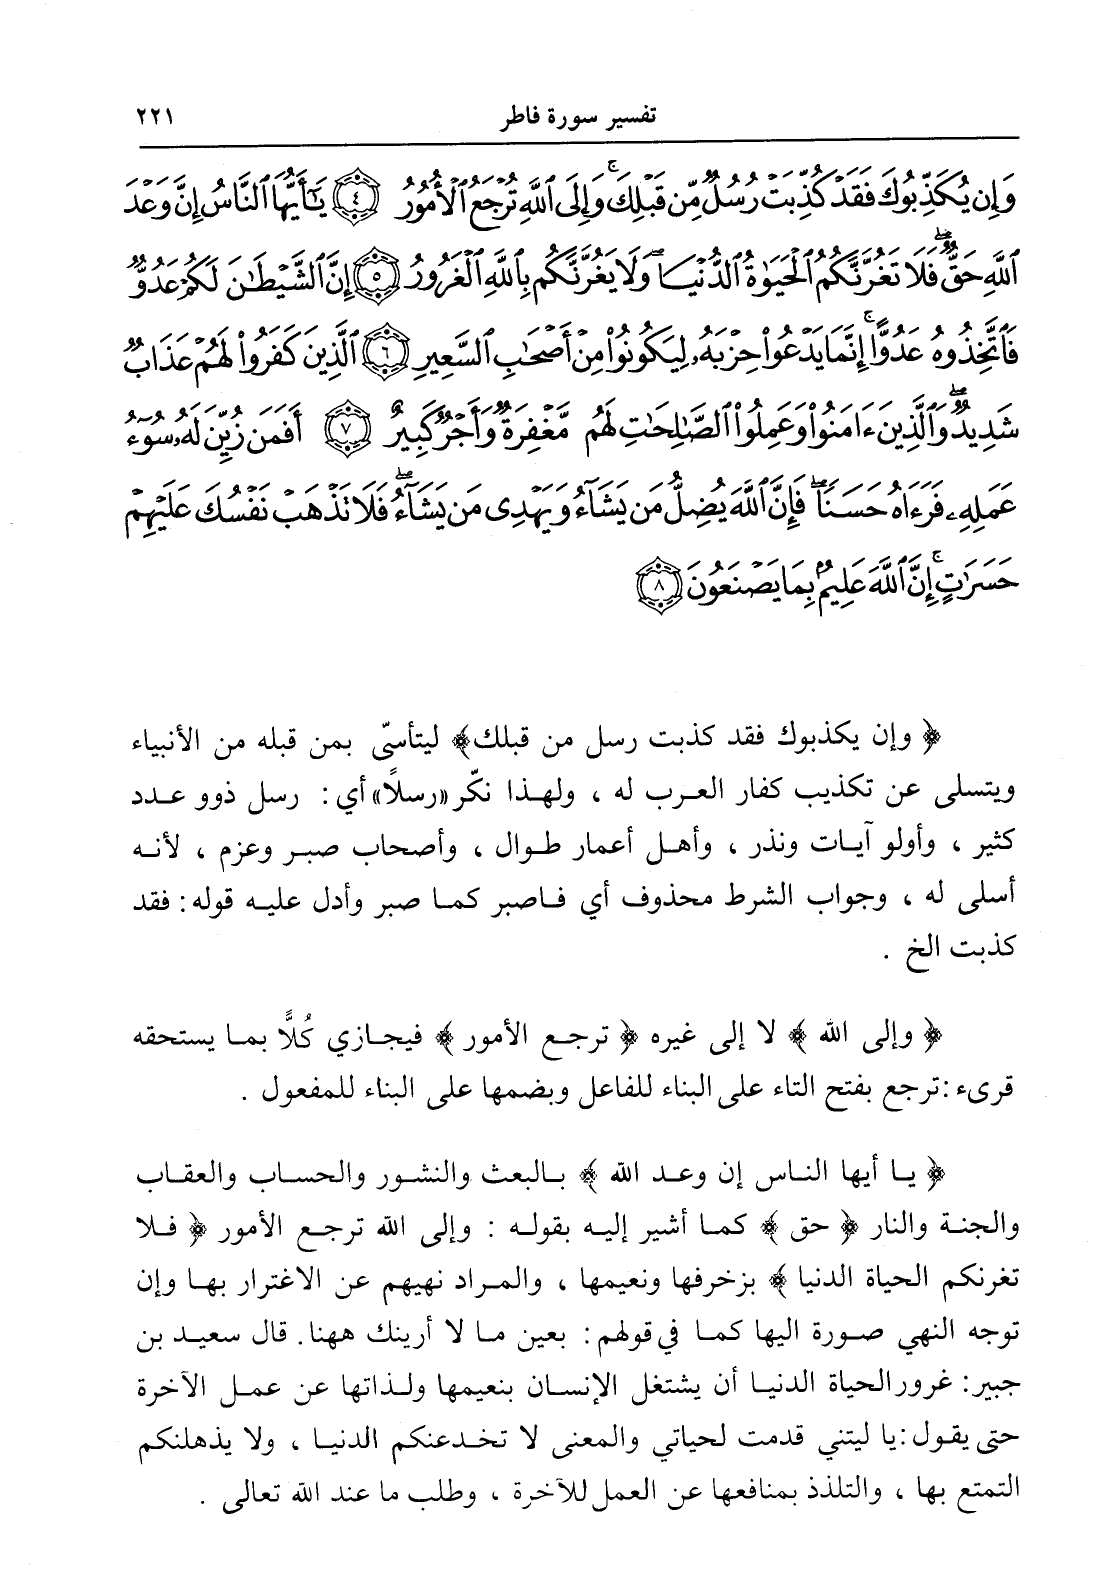 تفسير سورة فاطر ٢٢١
وَإِن يُكَذِّبُوكَ فَقَدْ كُذِّبَتْ رُسُلٌ مِّن قَبْلِكَ ۚ وَإِلَى ٱللَّهِ تُرْجَعُ ٱلْأُمُورُ ٤ يَـٰٓأَيُّهَا ٱلنَّاسُ إِنَّ وَعْدَ
ٱللَّهِ حَقٌّ ۖ فَلَا تَغُرَّنَّكُمُ ٱلْحَيَوٰةُ ٱلدُّنْيَا ۖ وَلَا يَغُرَّنَّكُم بِٱللَّهِ ٱلْغَرُورُ ٥ إِنَّ ٱلشَّيْطَـٰنَ لَكُمْ عَدُوٌّ
فَٱتَّخِذُوهُ عَدُوًّا ۚ إِنَّمَا يَدْعُوا۟ حِزْبَهُۥ لِيَكُونُوا۟ مِنْ أَصْحَـٰبِ ٱلسَّعِيرِ ٦ ٱلَّذِينَ كَفَرُوا۟ لَهُمْ عَذَابٌ
شَدِيدٌ ۖ وَٱلَّذِينَ ءَامَنُوا۟ وَعَمِلُوا۟ ٱلصَّـٰلِحَـٰتِ لَهُم مَّغْفِرَةٌ وَأَجْرٌ كَبِيرٌ ٧ أَفَمَن زُيِّنَ لَهُۥ سُوٓءُ
عَمَلِهِۦ فَرَءَاهُ حَسَنًا ۖ فَإِنَّ ٱللَّهَ يُضِلُّ مَن يَشَآءُ وَيَهْدِى مَن يَشَآءُ ۖ فَلَا تَذْهَبْ نَفْسُكَ عَلَيْهِمْ
حَسَرَٰتٍ ۚ إِنَّ ٱللَّهَ عَلِيمٌۢ بِمَا يَصْنَعُونَ ٨
﴿ وإن يكذبوك فقد كذبت رسل من قبلك﴾ ليتأسّى بمن قبله من الأنبياء
ويتسلى عن تكذيب كفار العرب له ، ولهذا نكّر «رسلاً» أي : رسل ذوو عدد
كثير ، وأولو آيات ونذر ، وأهل أعمار طوال ، وأصحاب صبر وعزم ، لأنه
أسلى له ، وجواب الشرط محذوف أي فاصبر كما صبر وأدل عليه قوله : فقد
كذبت الخ .
﴿ وإلى الله ﴾ لا إلى غيره ﴿ ترجع الأمور ﴾ فيجازي كُلًّا بما يستحقه
قرىء : ترجع بفتح التاء على البناء للفاعل وبضمها على البناء للمفعول .
﴿ يا أيها الناس إن وعد الله ﴾ بالبعث والنشور والحساب والعقاب
والجنة والنار ﴿ حق ﴾ كما أشير إليه بقوله : وإلى الله ترجع الأمور ﴿ فلا
تغرنكم الحياة الدنيا ﴾ بزخرفها ونعيمها ، والمراد نهيهم عن الاغترار بها وإن
توجه النهي صورة اليها كما في قولهم : بعين ما لا أرينك ههنا . قال سعيد بن
جبير : غرور الحياة الدنيا أن يشتغل الإنسان بنعيمها ولذاتها عن عمل الآخرة
حتى يقول : يا ليتني قدمت لحياتي والمعنى لا تخدعنكم الدنيا ، ولا يذهلنكم
التمتع بها ، والتلذذ بمنافعها عن العمل للآخرة ، وطلب ما عند الله تعالى .